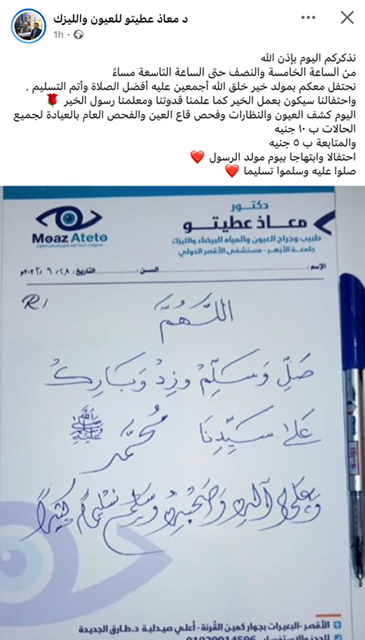 د معاذ عطيتو للعيون والليزك
1h
نذكركم اليوم بإذن الله
من الساعة الخامسة والنصف حتى الساعة التاسعة مساءً
نحتفل معكم بمولد خير خلق الله أجمعين عليه أفضل الصلاة وأتم التسليم .
واحتفالنا سيكون بعمل الخير كما علمنا قدوتنا ومعلمنا رسول الخير 🌹
اليوم كشف العيون والنظارات وفحص قاع العين والفحص العام بالعيادة لجميع
الحالات ب ١٠ جنيه
والمتابعة ب ٥ جنيه
احتفالا وابتهاجا بيوم مولد الرسول ❤️
صلوا عليه وسلموا تسليما ❤️
دكتور
معاذ عطيتو
Moaz Ateto
طبيب وجراح العيون والمياه البيضاء والليزك
جامعة الأزهر - مستشفى الأقصر الدولي
الإسم: السن: التاريخ:
R/
اللَّهُمَّ
صَلِّ وَسَلِّمْ وَزِدْ وَبَارِكْ
عَلَى سَيِّدِنَا مُحَمَّد ﷺ
وَعَلَى آلِهِ وَصَحْبِهِ وَسَلِّمْ تَسْلِيمًا كَثِيرًا
الأقصر-البعيرات بجوار كمين القرنة - أعلي صيدلية د.طارق الجديدة